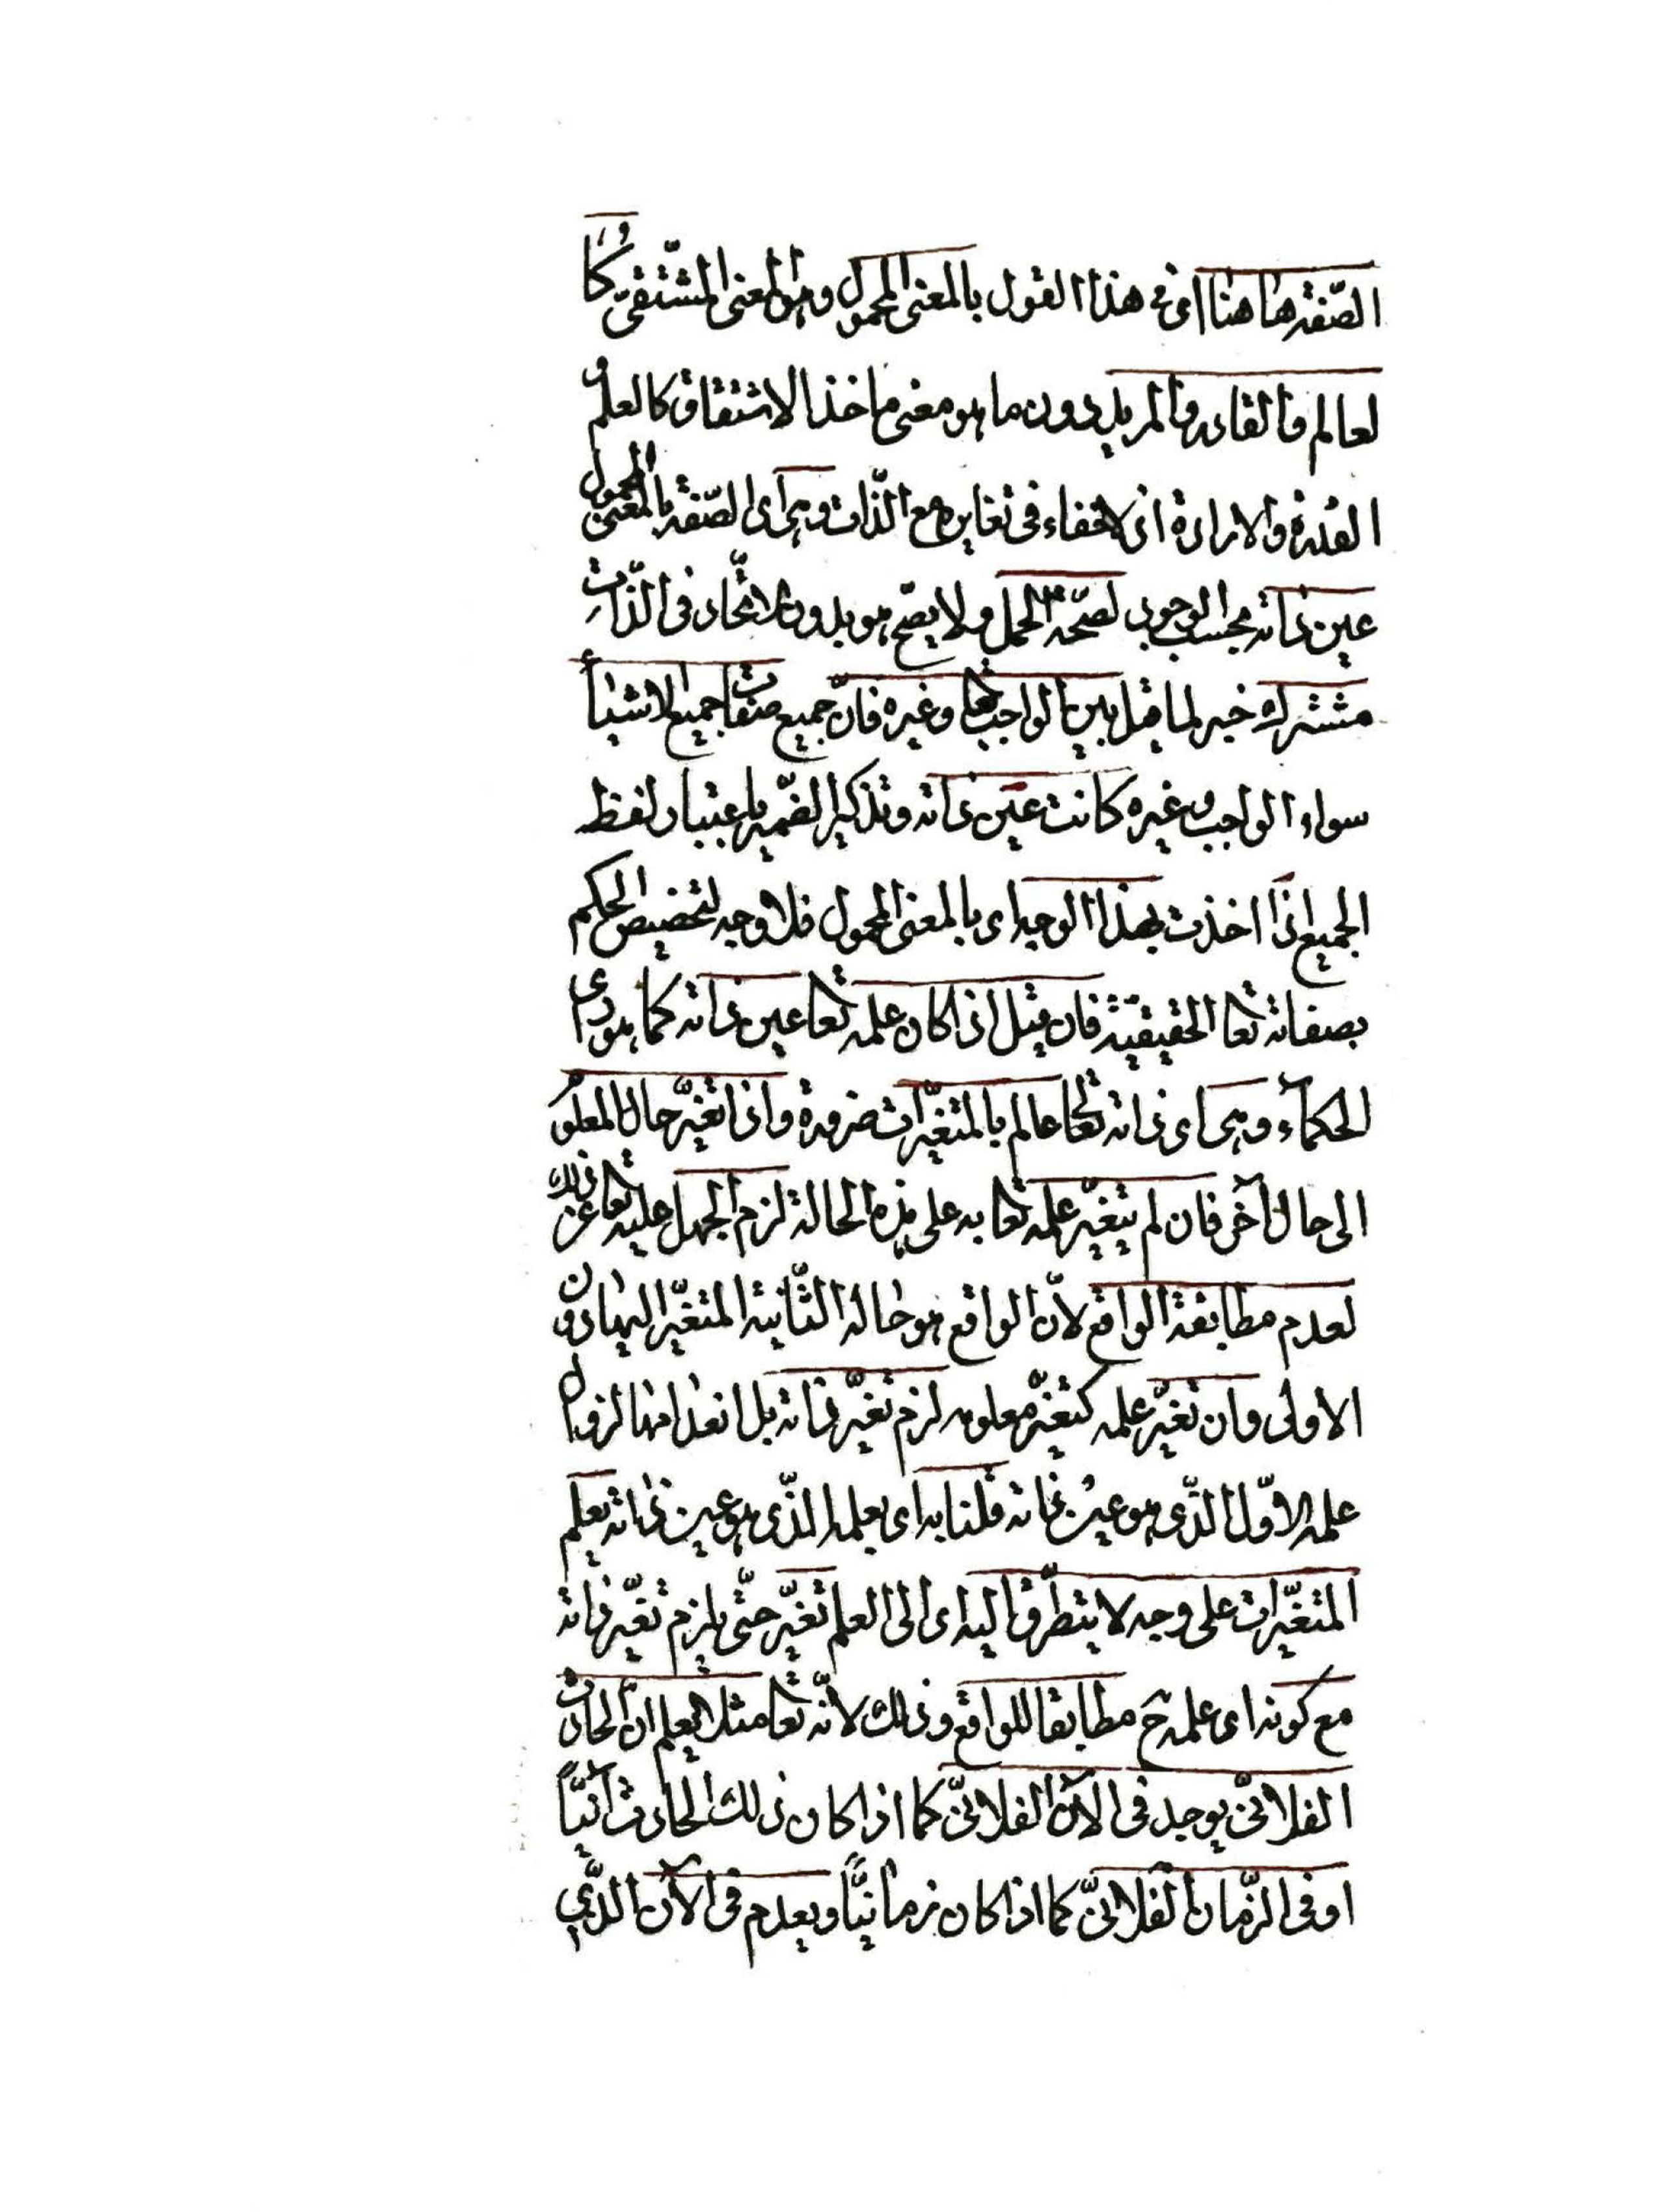 الصّفة هاهنا اى فى هذا القول بالمعنى المحمول وهو المعنى المشتقىّ كا
لعالم والقادر والمريد دون ما هو معنى ماخذ الاشتقاق كالعلم و
القدرة والارادة اذ لا خفاء فى تغايره مع الذّات وهى اى الصّفة بالمعنى المحمول
عين ذاته بحسب الوجود لصحّة الحمل ولا يصحّ هو بدون الاتّحاد فى الذّات
مشترك خبر لما قبل بين الواجب تعا وغيره فانّ جميع صفات جميع الاشياء
سواء الواجب وغيره كانت عين ذاته وتذكير الضّمير باعتبار لفظ
الجميع اذا اخذت بهذا الوجه اى بالمعنى المحمول فلا وجه لتخصيص الحكم
بصفاته تعا الحقيقيّة فان قيل اذا كان علمه تعا عين ذاته كما هو راى
الحكمآء وهى اى ذاته تعا عالم بالمتغيّرات ضرورة واذا تغيّر حال المعلوم
الى حال آخر فان لم يتغيّر علمه تعا به على هذه الحالة لزم الجهل عليه تعا عن ذلك
لعدم مطابقة الواقع لانّ الواقع هو حاله الثّانية المتغيّر اليها دون
الاولى وان تغيّر علمه كتغيّر معلومه لزم تغيّر ذاته بل انعدامها لزوال
علمه الاوّل الذّى هو عين ذاته قلنا به اى بعلمه الذّى هو عين ذاته يعلم
المتغيّرات على وجه لا يتطرّق اليه اى الى العلم تغيّر حتّى يلزم تغيّر ذاته
مع كونه اى علمه ح مطابقا للواقع وذلك لانّه تعا مثلا يعلم انّ الحادث
الفلانىّ يوجد فى الآن الفلانىّ كما اذا كان ذلك الحادث آنيّا
او فى الزّمان الفلانىّ كما اذا كان زمانيّا ويعدم فى الآن الذّي